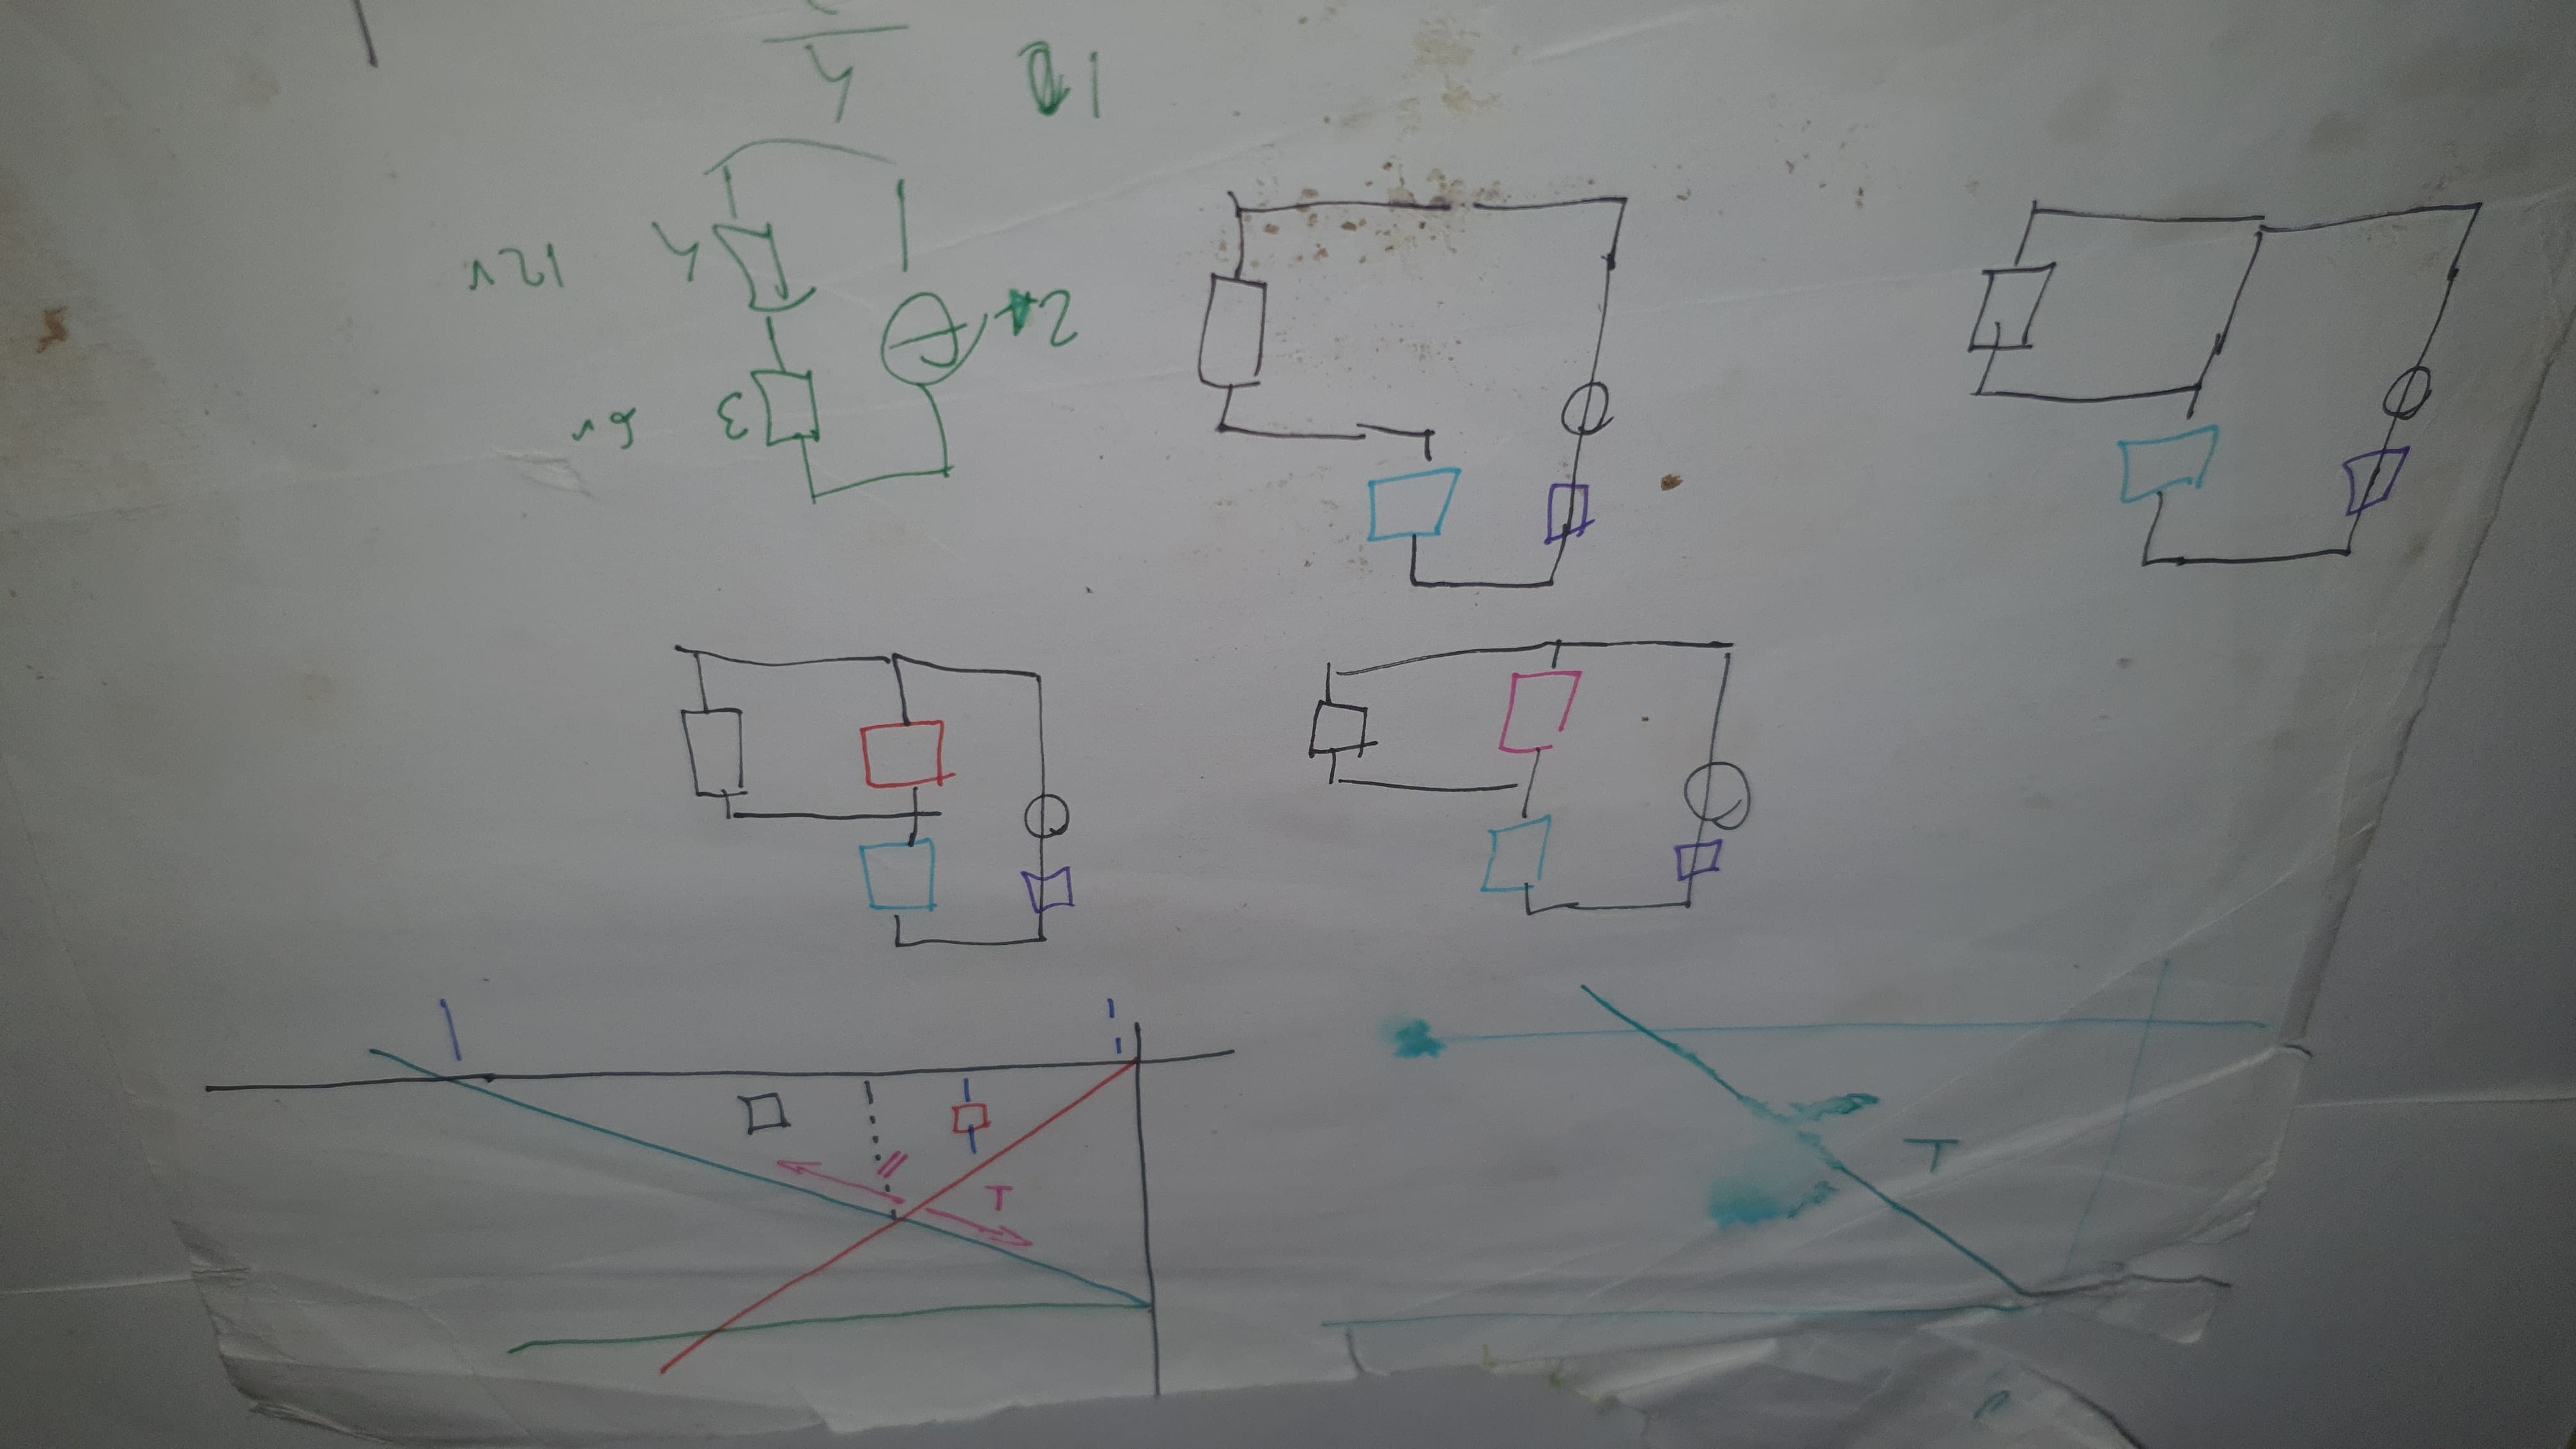 ⊥
⊥
//
3 6v
2A
4 12v
10
4